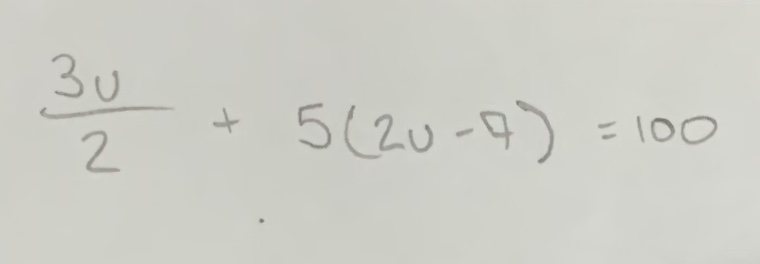 3u/2 + 5(2u - 7) = 100